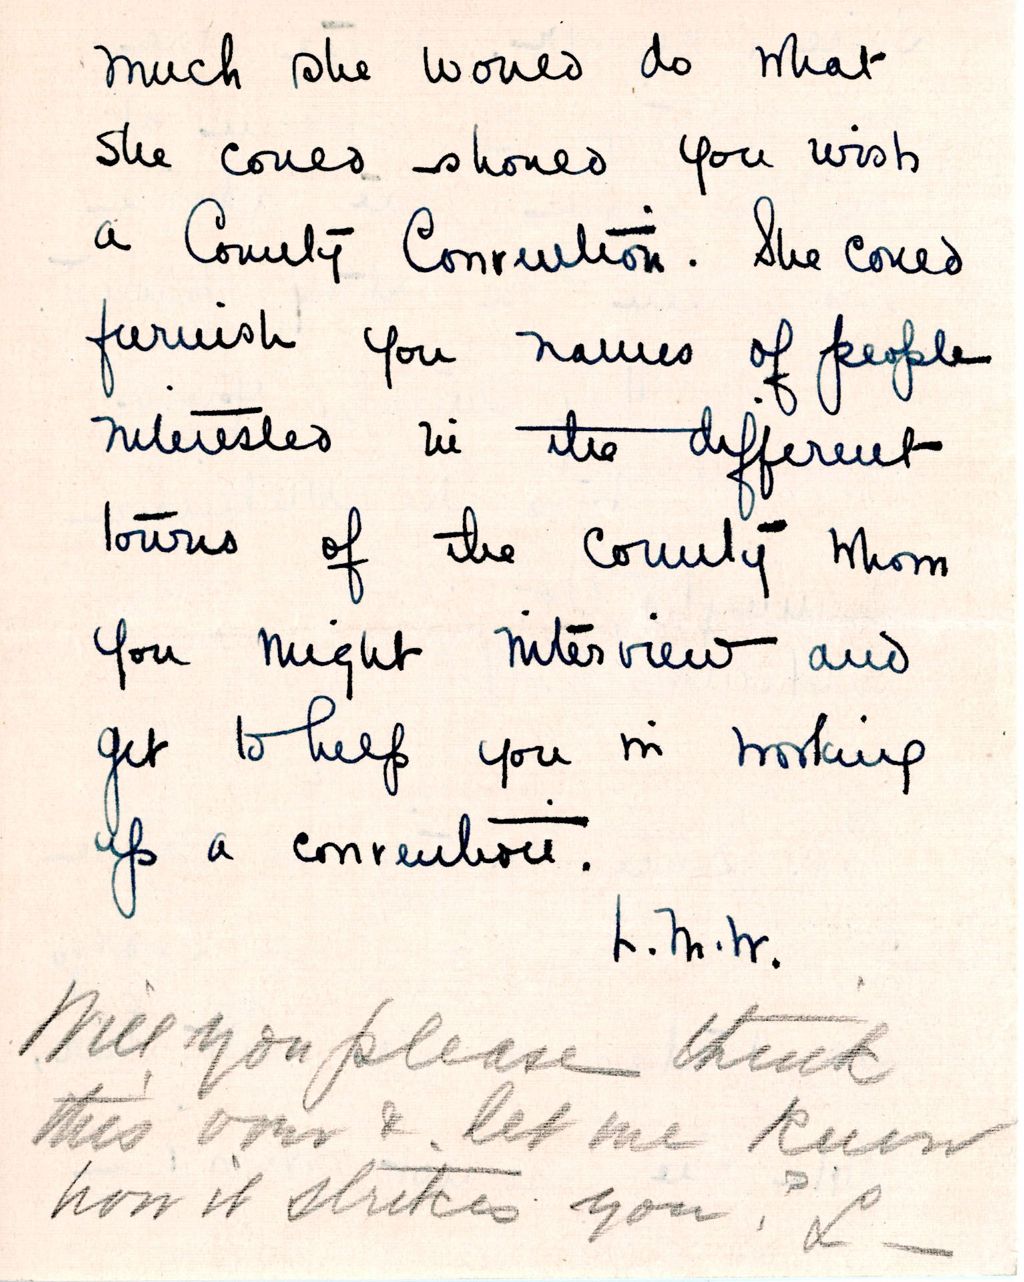 much she would do what
she could should you wish
a County Convention. She could
furnish you names of people
interested in the different
towns of the county whom
you might interview and
get to help you in working
up a convention.
L.M.W.
Will you please think
this over & let me know
how it strikes you. L—